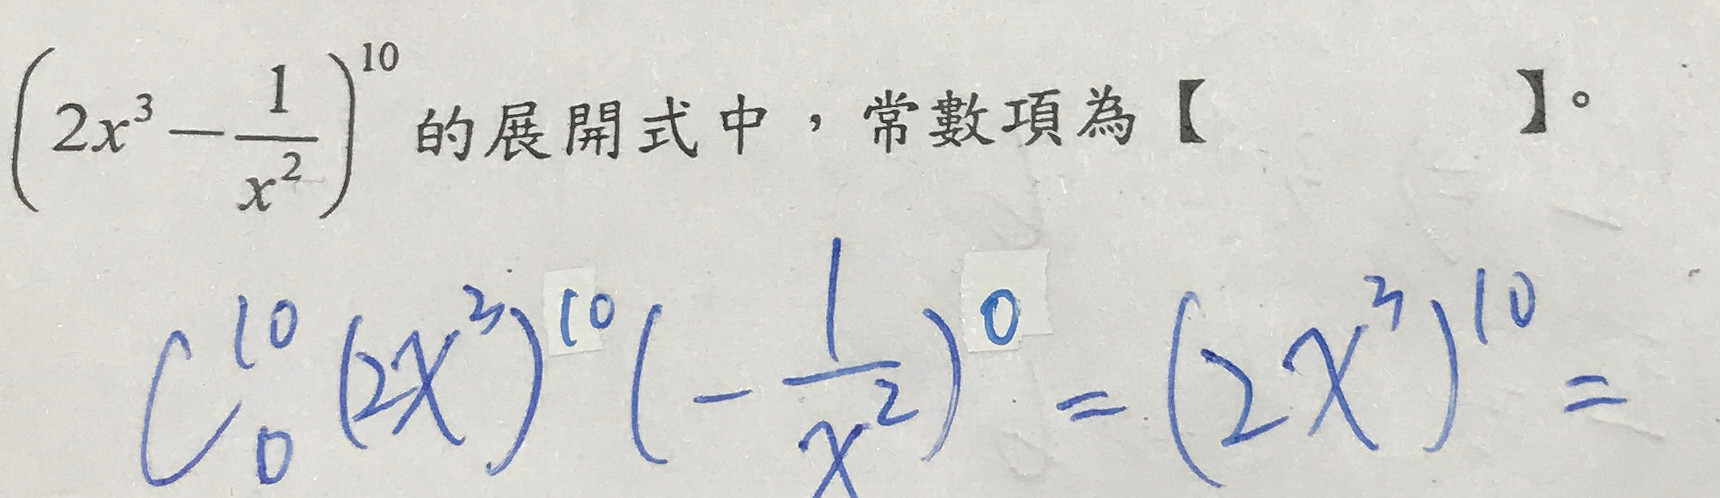 (2x³ − 1/x²)¹⁰ 的展開式中，常數項為【 】。
C¹⁰₀ (2x³)¹⁰ (− 1/x²)⁰ = (2x³)¹⁰ =